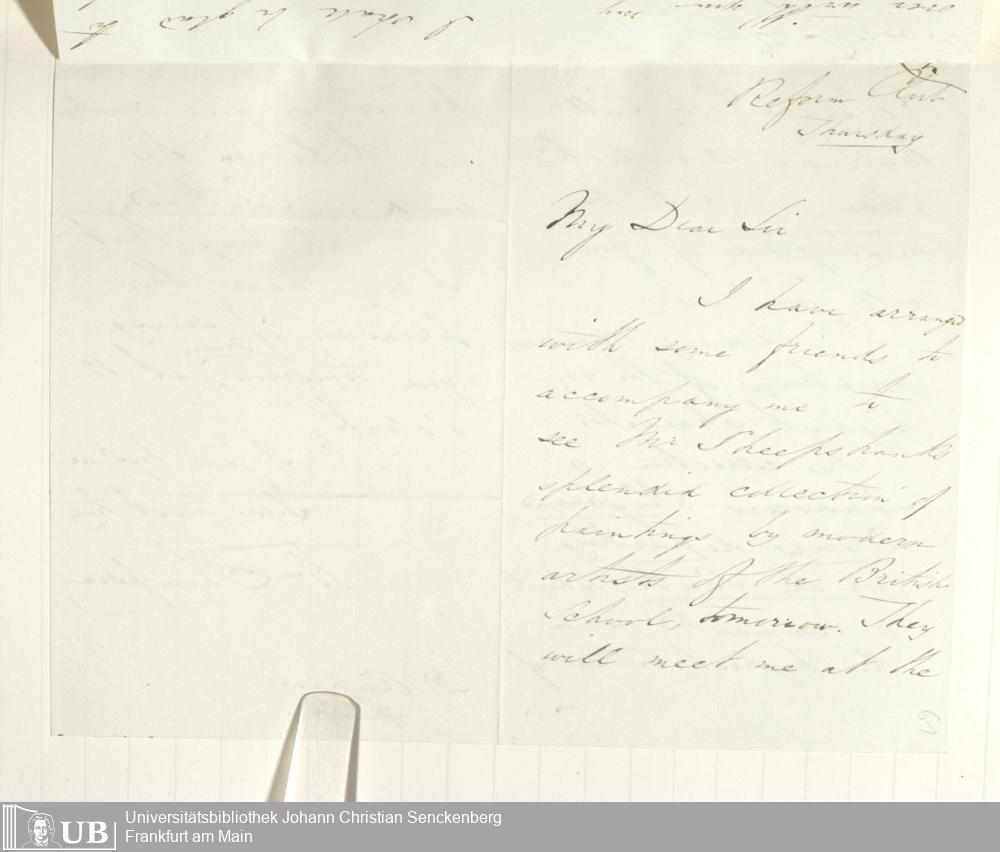 I shall be glad to
Reform Club
Thursday
My Dear Sir
I have arranged
with some friends to
accompany me to
see Mr Sheepshanks
splendid collection of
paintings by modern
artists of the British
School, tomorrow. They
will meet me at the
UB
Universitätsbibliothek Johann Christian Senckenberg
Frankfurt am Main